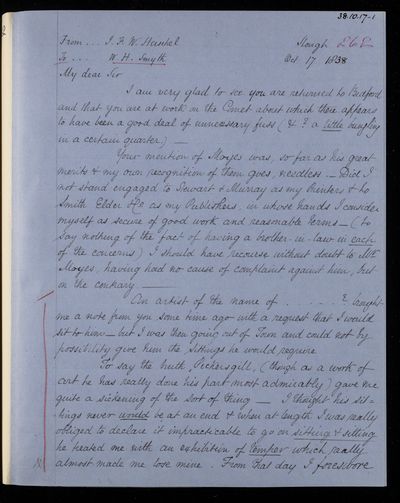 38.10.17-1
From ... J. F. W. Herschel
Slough
To ... W. H. Smyth
Oct 17 1838
My dear Sir
I am very glad to see you are returned to Bedford
and that you are at work on the Comet about which there appears
to have been a good deal of unnecessary fuss (& ? a little bungling
in a certain quarter) —
Your mention of Moyes was, so far as his great
merits & my own recognition of them goes, needless. — Did I
not stand engaged to Stewart & Murray as my Printers & to
Smith Elder & Co as my Publishers, in whose hands I consider
myself as secure of good work and reasonable terms — (to
say nothing of the fact of having a brother-in-law in each
of the concerns) I should have recourse without doubt to Mr
Moyes, having had no cause of complaint against him, but
on the contrary —
An artist of the name of . . . . . ? brought
me a note from you some time ago with a request that I would
sit to him — but I was then going out of Town and could not by
possibility give him the sittings he would require
To say the truth Pickersgill, (though as a work of
art he has really done his part most admirably) gave me
quite a sickening of the sort of thing — I thought his sit-
tings never would be at an end & when at length I was really
obliged to declare it impracticable to go on sitting & sitting
he treated me with an exhibition of temper which really
almost made me lose mine. From that day I foreswore